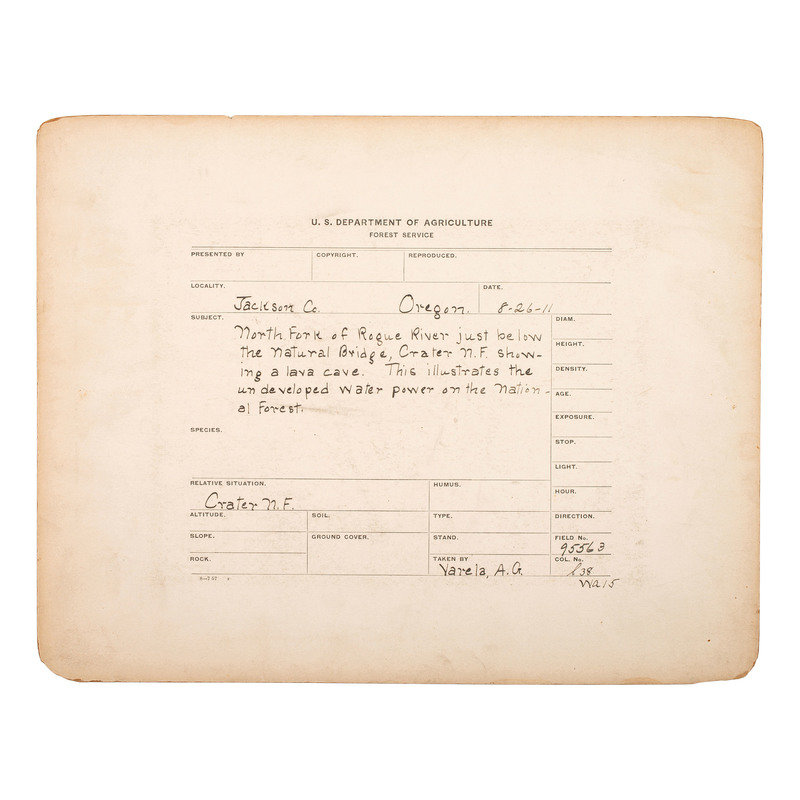 U. S. DEPARTMENT OF AGRICULTURE
FOREST SERVICE
PRESENTED BY
COPYRIGHT.
REPRODUCED.
LOCALITY.
DATE.
Jackson Co. Oregon. 8-26-11
SUBJECT.
DIAM.
North Fork of Rogue River just below
the Natural Bridge, Crater N.F. show-
ing a lava cave. This illustrates the
undeveloped water power on the Nation-
al Forest.
HEIGHT.
DENSITY.
AGE.
EXPOSURE.
SPECIES.
STOP.
LIGHT.
RELATIVE SITUATION.
HUMUS.
HOUR.
Crater N.F.
ALTITUDE.
SOIL.
TYPE.
DIRECTION.
SLOPE.
GROUND COVER.
STAND.
FIELD No.
95563
ROCK.
TAKEN BY
COL. No.
Varela, A.G.
38
Wa15